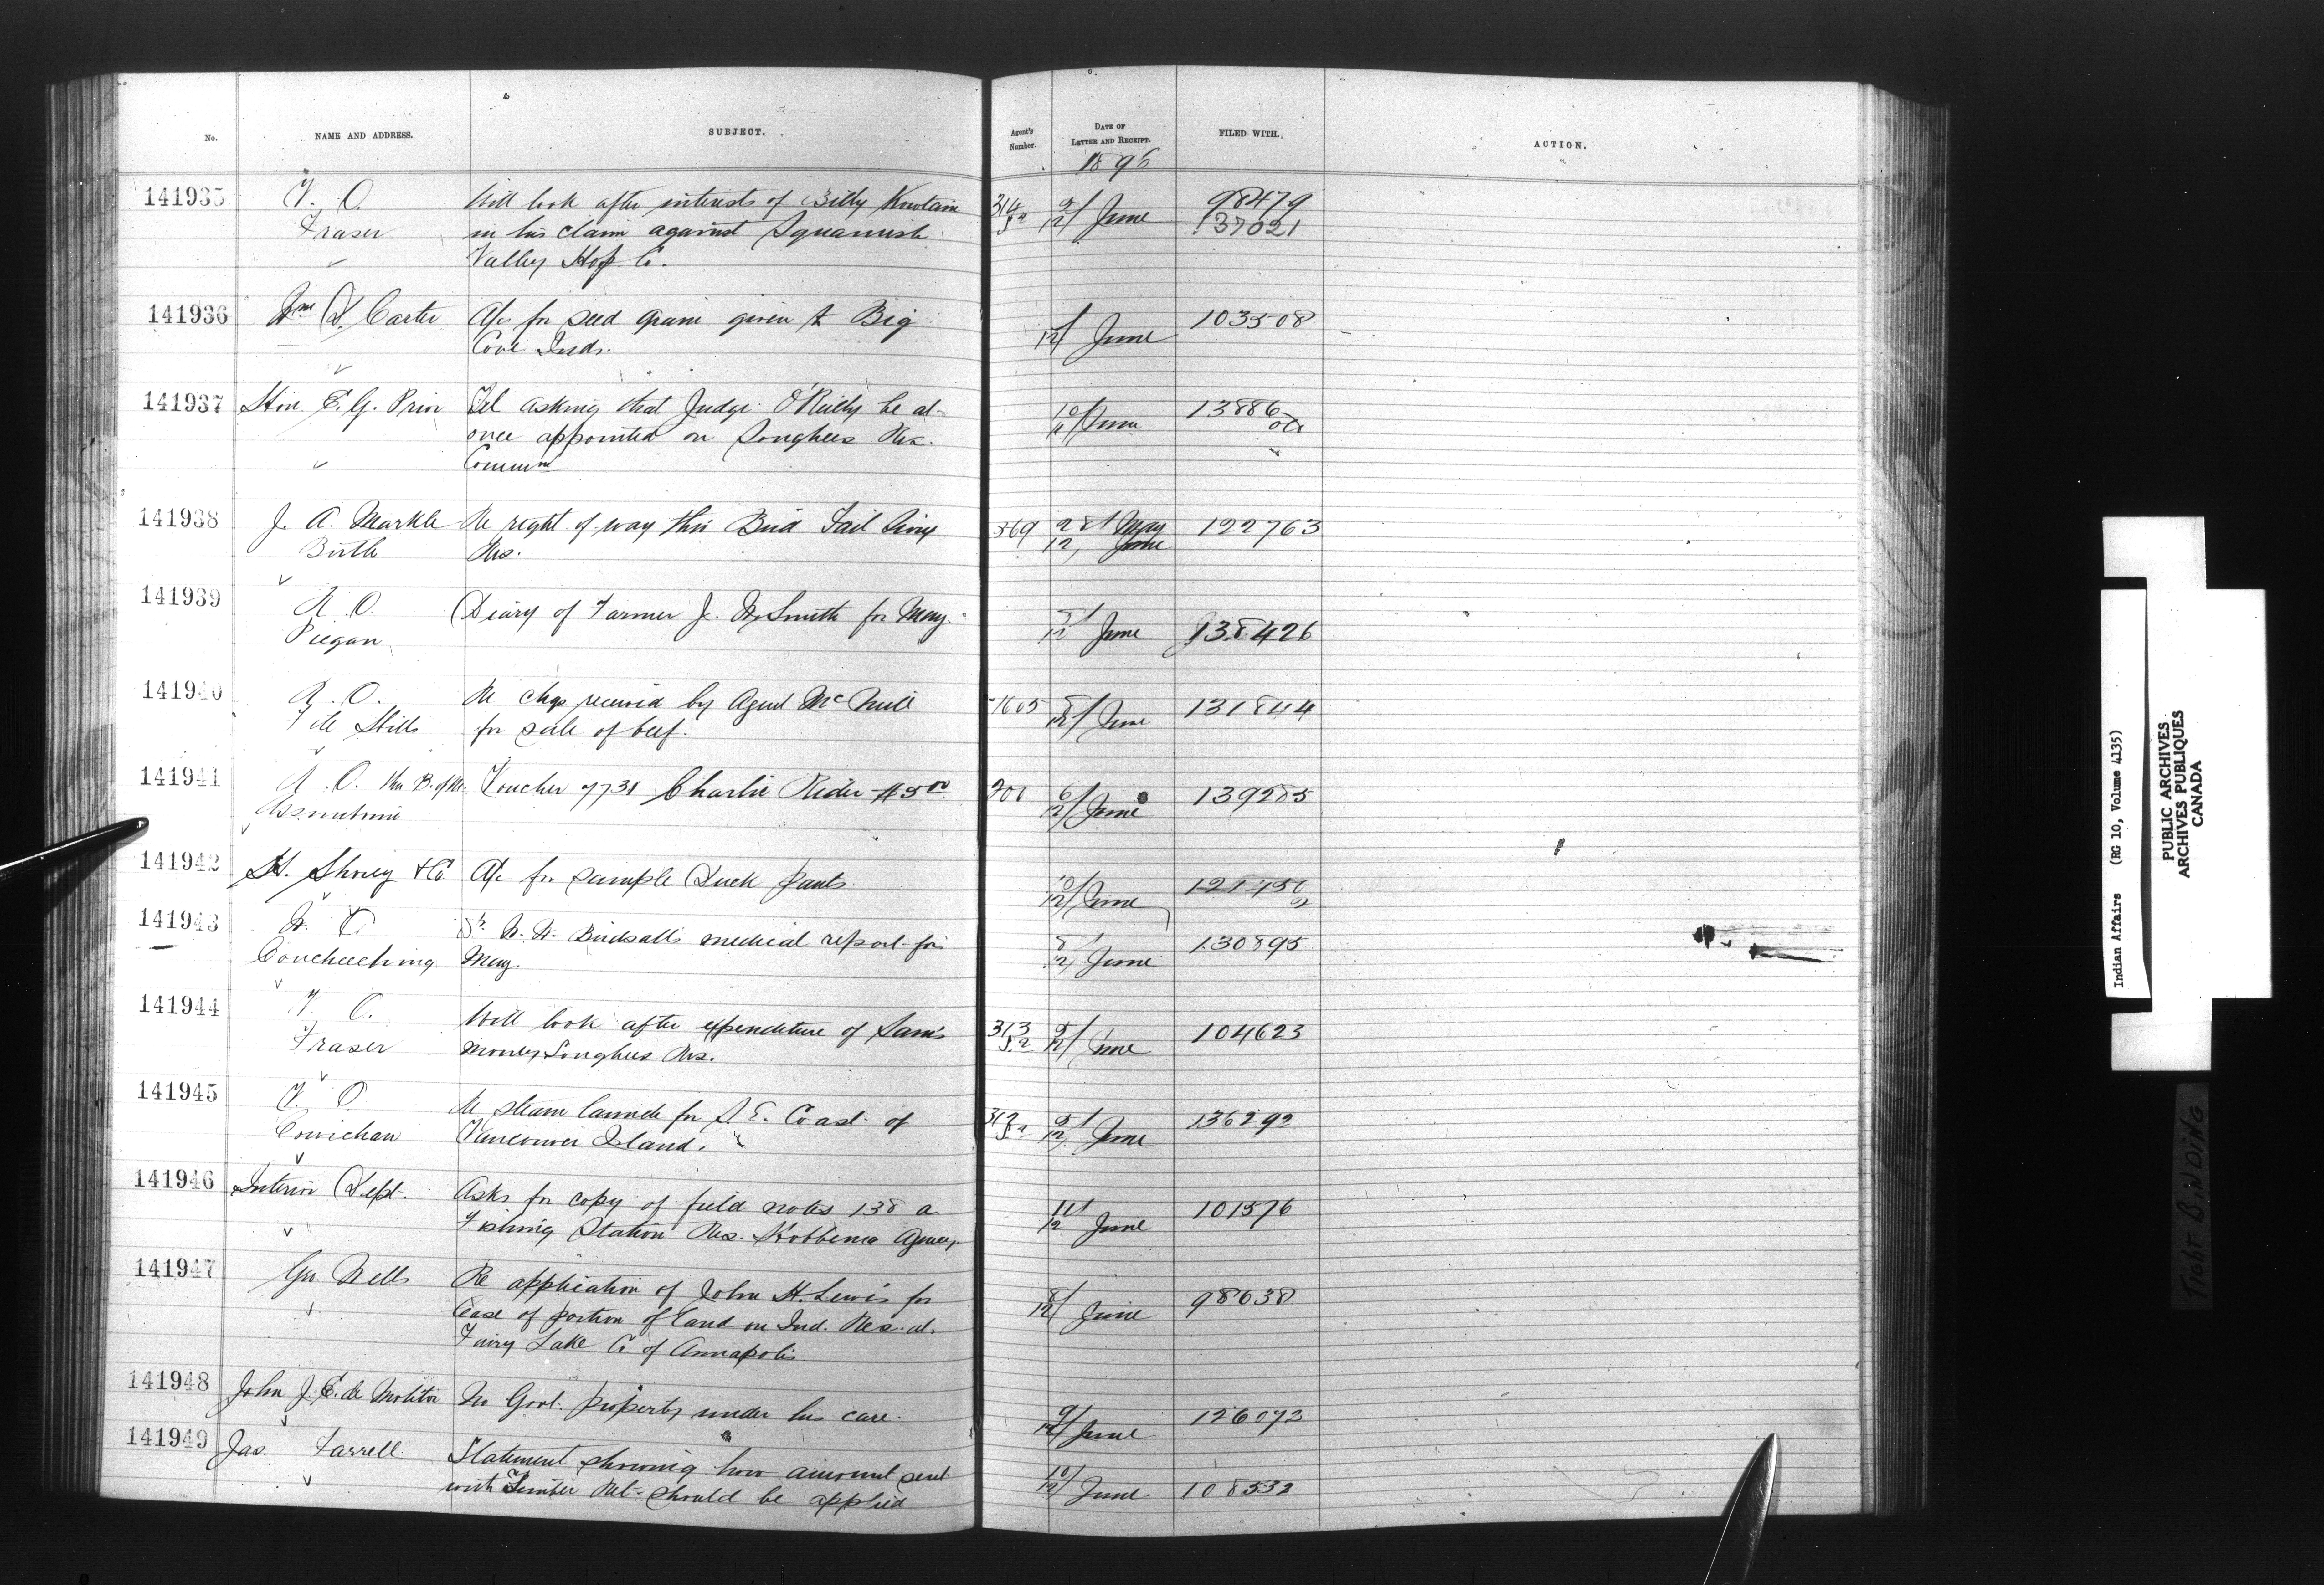 No. NAME AND ADDRESS. SUBJECT. Agent's Number. DATE OF LETTER AND RECEIPT. FILED WITH. ACTION.
1896
141935 V. O. Will look after interests of Billy 314 9/ June 98479
Fraser in his claim against Squamish 12/ 137021
Valley Hop Co.
141936 Wm D. Carter A/c for seed grain given to Big 12/ June 103508
Cove Inds.
141937 Hon E. G. Prior Tel asking that Judge O'Reilly be at 10/ June 13886
once appointed on Songhees Res.
Commn
141938 J. A. Markle Re right of way thro Bird Tail Sioux 369 28/ May 122763
Birtle Res. 12, June
141939 A. O. Diary of Farmer J. W. Smith for May. June 138426
Piegan 12
141940 A. O. Re chqs received by Agent McNeill 1605 8/ June 131844
File Hills for sale of beef. 12/
141941 A. O. Voucher 7731 Charlie Rider $5 00 6/ June 139285
Assiniboine 12/
141942 H. Shorey & Co A/c for sample Duck pants. 10/ June
12/
141943 Dr. W. W. Birdsall's medical report for 8/ June 130895
Couchiching May. 12/
141944 V. O. Will look after expenditure of Sam's 313 9/ June 104623
Fraser money Songhees Res. 12/
141945 V. O. Re steam launch for S. E. Coast of 312 9/ June 136292
Cowichan Vancouver Island. 12/
141946 Interior Dept. Asks for copy of field notes 138 a 11/ June 101576
Fishing Station Res. Hobbema Agency. 12
141947 Re application of John H. Lewis for 8/ June 98638
lease of portion of land on Ind. Res. at 12/
Fairy Lake Co of Annapolis
141948 John J. E. de Molitor No Govt. property under his care. 9/ June 126072
12/
141949 Jas. Farrell Statement showing how amount sent 10/ June 108532
with Timber Ret. should be applied 12/
Indian Affairs (RG 10, Volume 4135)
PUBLIC ARCHIVES
ARCHIVES PUBLIQUES
CANADA
TIGHT BINDING